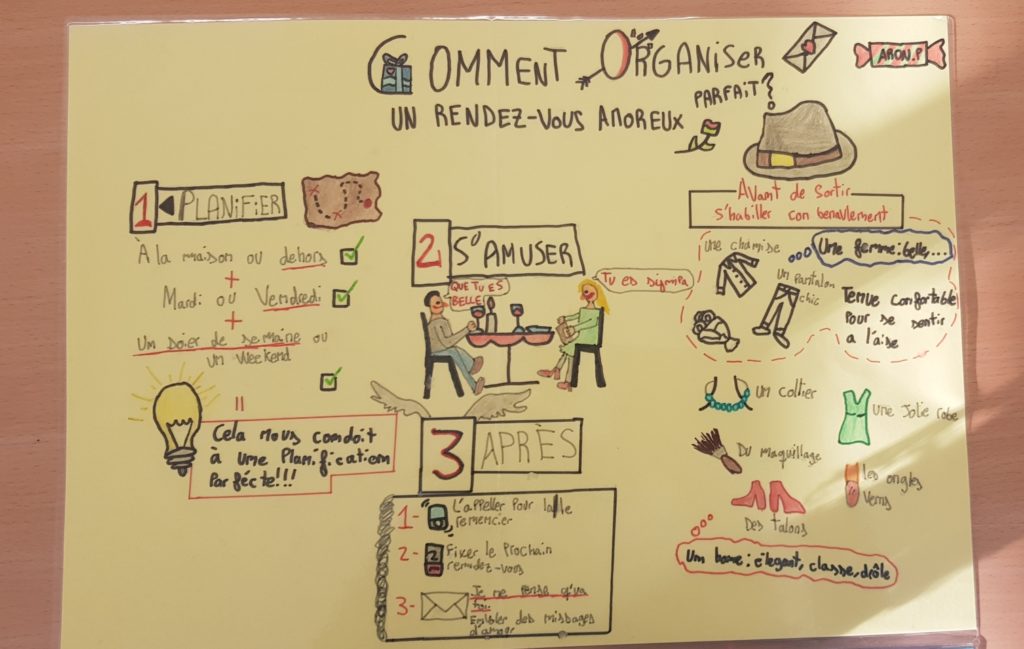 COMMENT ORGANISER
UN RENDEZ-VOUS AMOREUX
PARFAIT?
ARON.P
1 PLANIFIER
À la maison ou dehors
+
Mardi ou Vendredi
+
Un soier de semaine ou
un weekend
=
Cela nous condoit
à une Planification
Parfécte!!!
2 S'AMUSER
QUE TU ES
BELLE
TU es
3 APRÈS
1- L'appeller Pour la/le
remercier
2- Fixer le Prochain
rendez-vous
3- Je ne pense qu'va
toi
des missages
d'amour
Avant de sortir
s'habiller
Une chamise
Une femme: belle,...
un Pantalon
chic
Tenue confortable
Pour se sentir
a l'aise
un collier
une Jolie robe
Du maquillage
les ongles
Verns
Des talons
Um home: élegant, classe, drôle